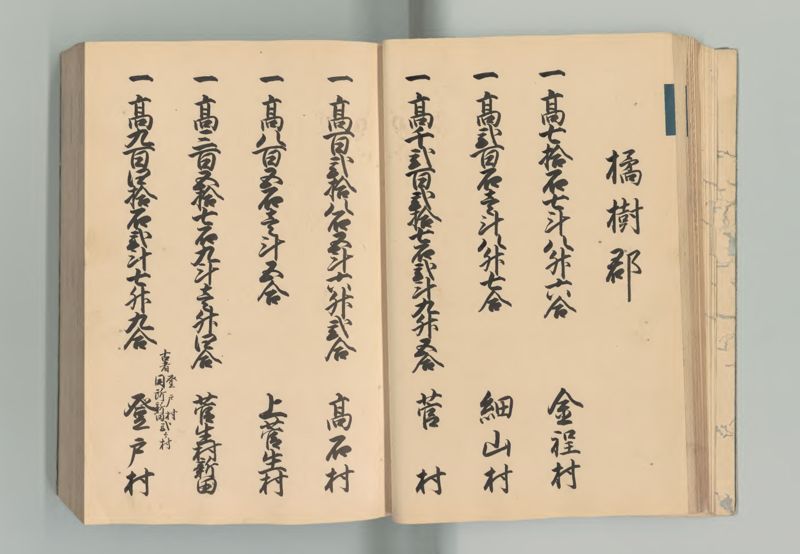 橘樹郡
一高七拾石七斗八升六合 金程村
一高弐百石壱斗八升七合 細山村
一高千弐百弐拾七石弐斗九升五合 菅村
一高百弐拾八石五斗六升弐合 高石村
一高八百五石壱斗五合 上菅生村
一高二百五拾七石九斗壱升四合 菅生村新田
一高九百四拾石弐斗七升九合 登戸村
古者登戸村
同所新田弐ヶ村